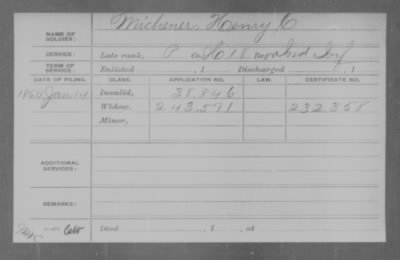 NAME OF SOLDIER: Michener, Henry C
SERVICE: Late rank, P Co. H, 18 Reg't Ind Inf
TERM OF SERVICE: Enlisted , 1 Discharged , 1
DATE OF FILING. CLASS. APPLICATION NO. LAW. CERTIFICATE NO.
1864 Jan 14 Invalid, 38.846
Widow, 243,571 232.358
Minor,
ADDITIONAL SERVICES:
REMARKS:
Died , 1 , at